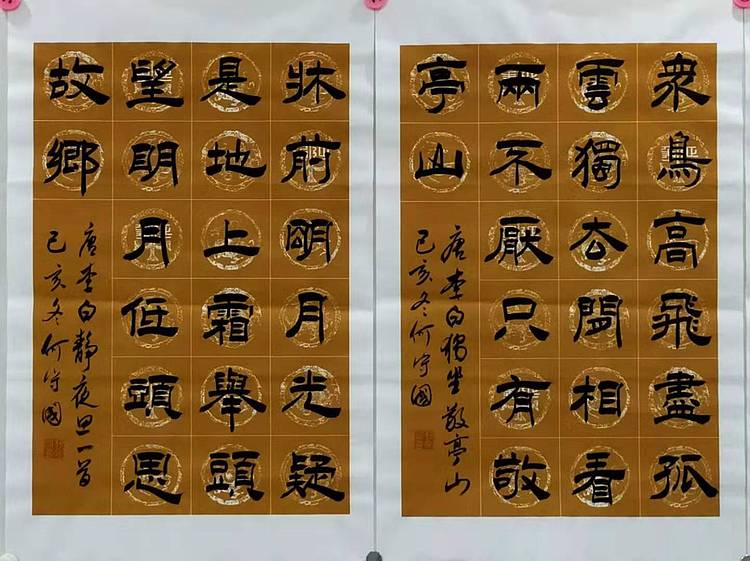 衆鳥高飛盡孤
雲獨去閒相看
兩不厭只有敬
亭山
唐李白獨坐敬亭山
己亥冬何守國
牀前明月光疑
是地上霜舉頭
望明月低頭思
故鄉
唐李白靜夜思一首
己亥冬何守國